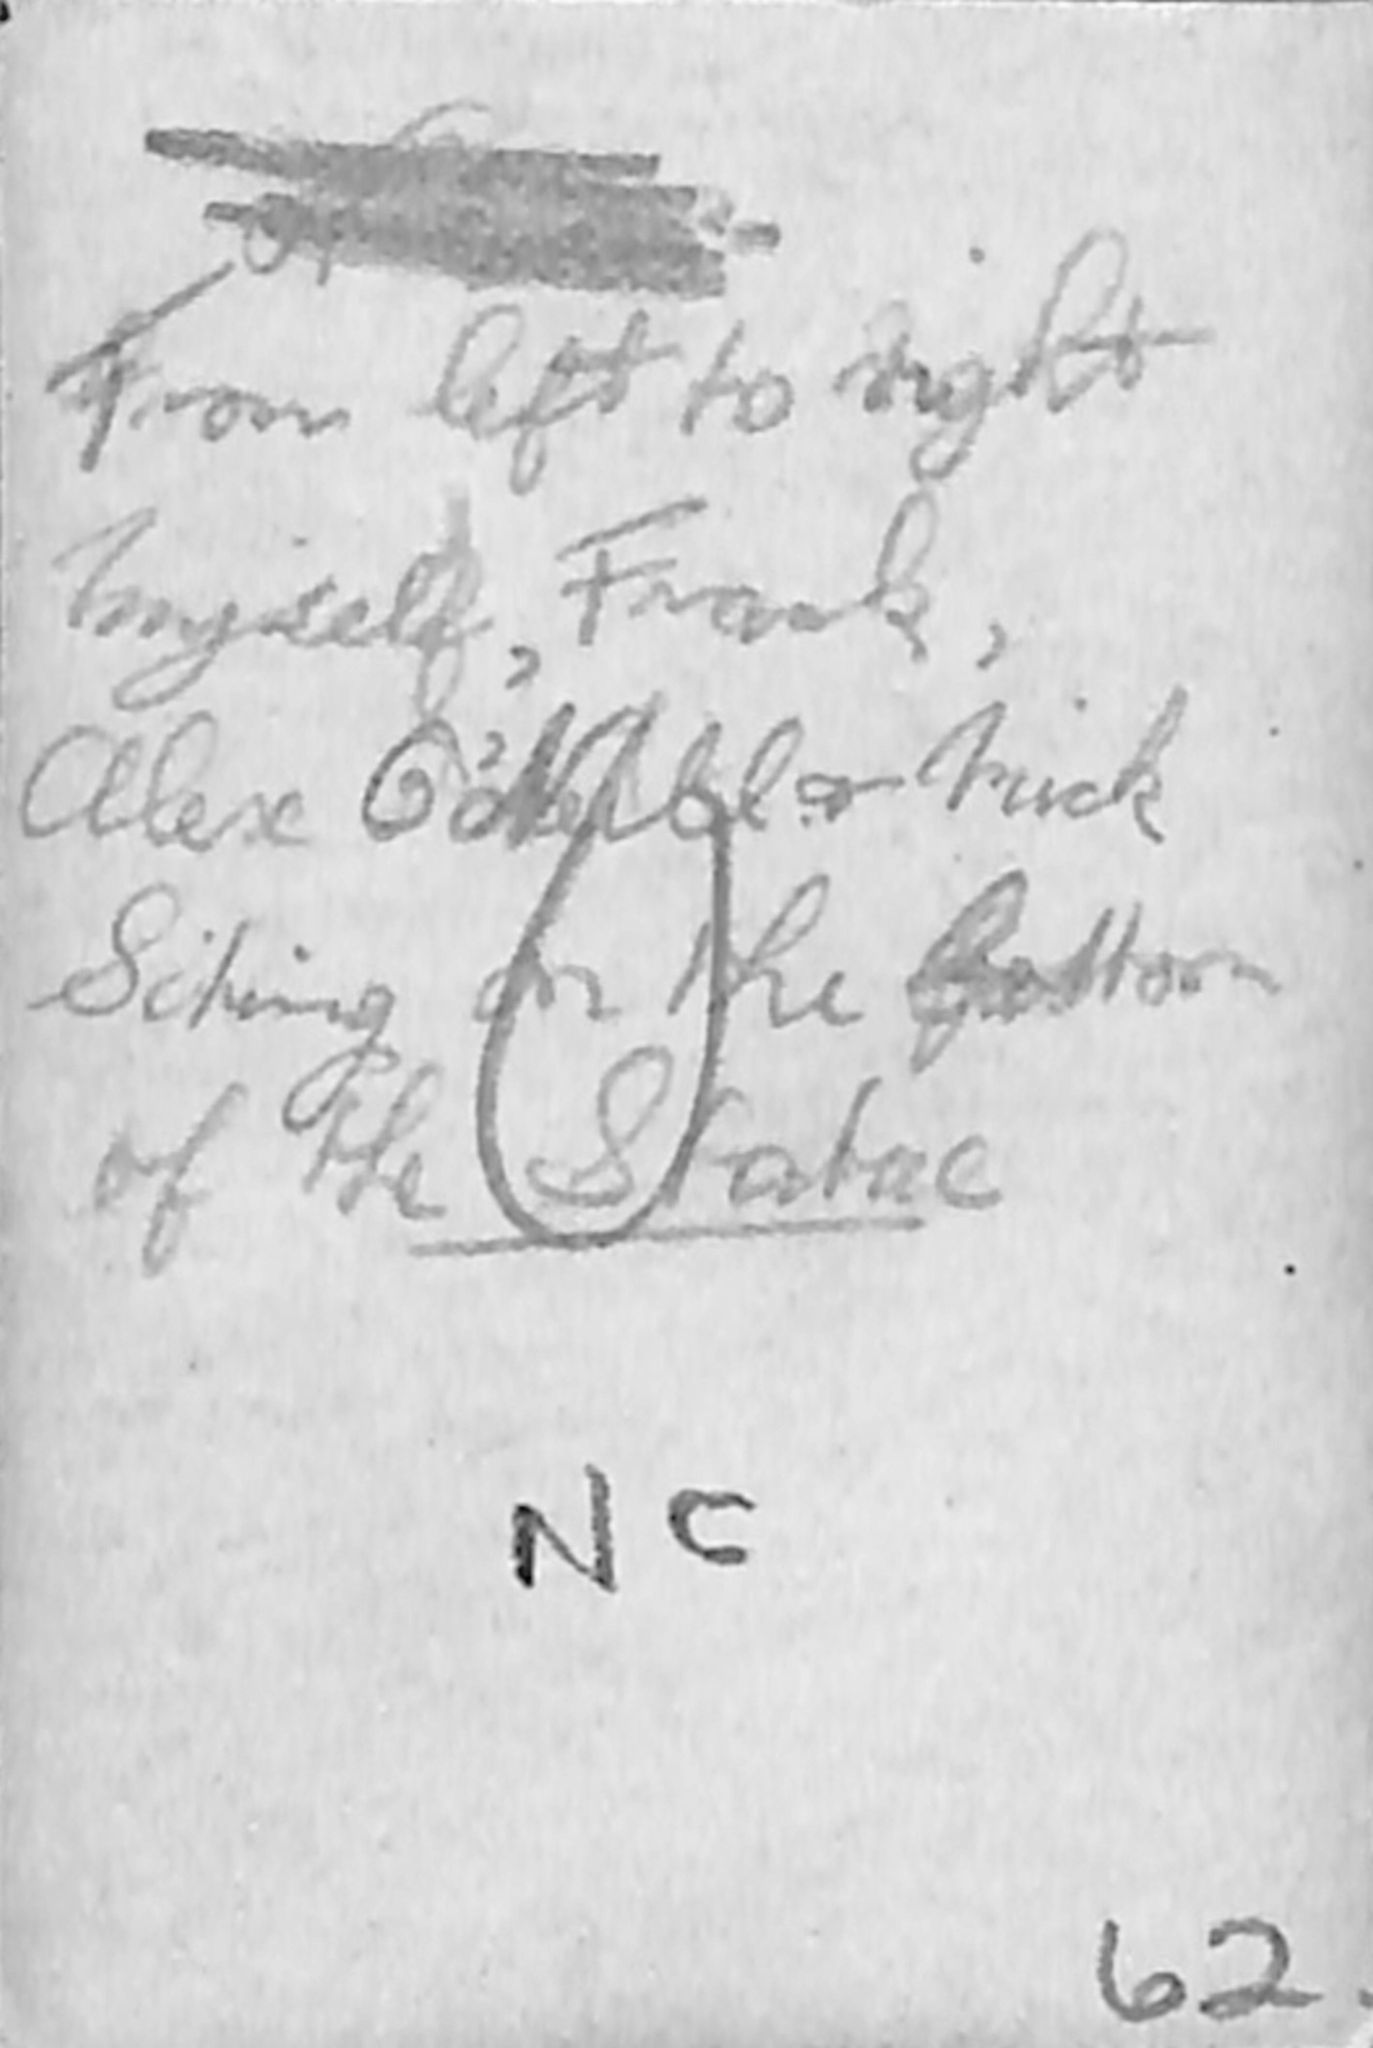 From left to right
Myself, Frank,
Alex & Nick
Siting on the bottom
of the Statue
NC
62.